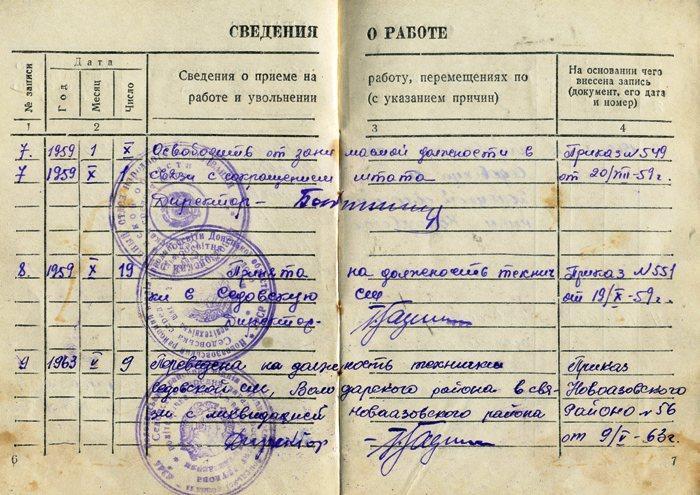 СВЕДЕНИЯ О РАБОТЕ
№ записи
Дата
Год
Месяц
Число
Сведения о приеме на работу, перемещениях по
работе и увольнении (с указанием причин)
На основании чего
внесена запись
(документ, его дата
и номер)
1 2 3 4
7. 1959 1 X Освободить от занимаемой должности в Приказ №549
7 1959 X 1 связи с сокращением штата от 20/VIII-59г.
Директор-
8. 1959 X 19 Принята на должность технич Приказ №551
ки в Седовскую от 19/X-59г.
Директор-
9 1963 9 Переведена на должность технички Приказ
Седовской сш, Володарского района в свя- Новоазовского
зи с ликвидацией Новоазовского района Районо №56
Директор от 9/ -63г.
6 7